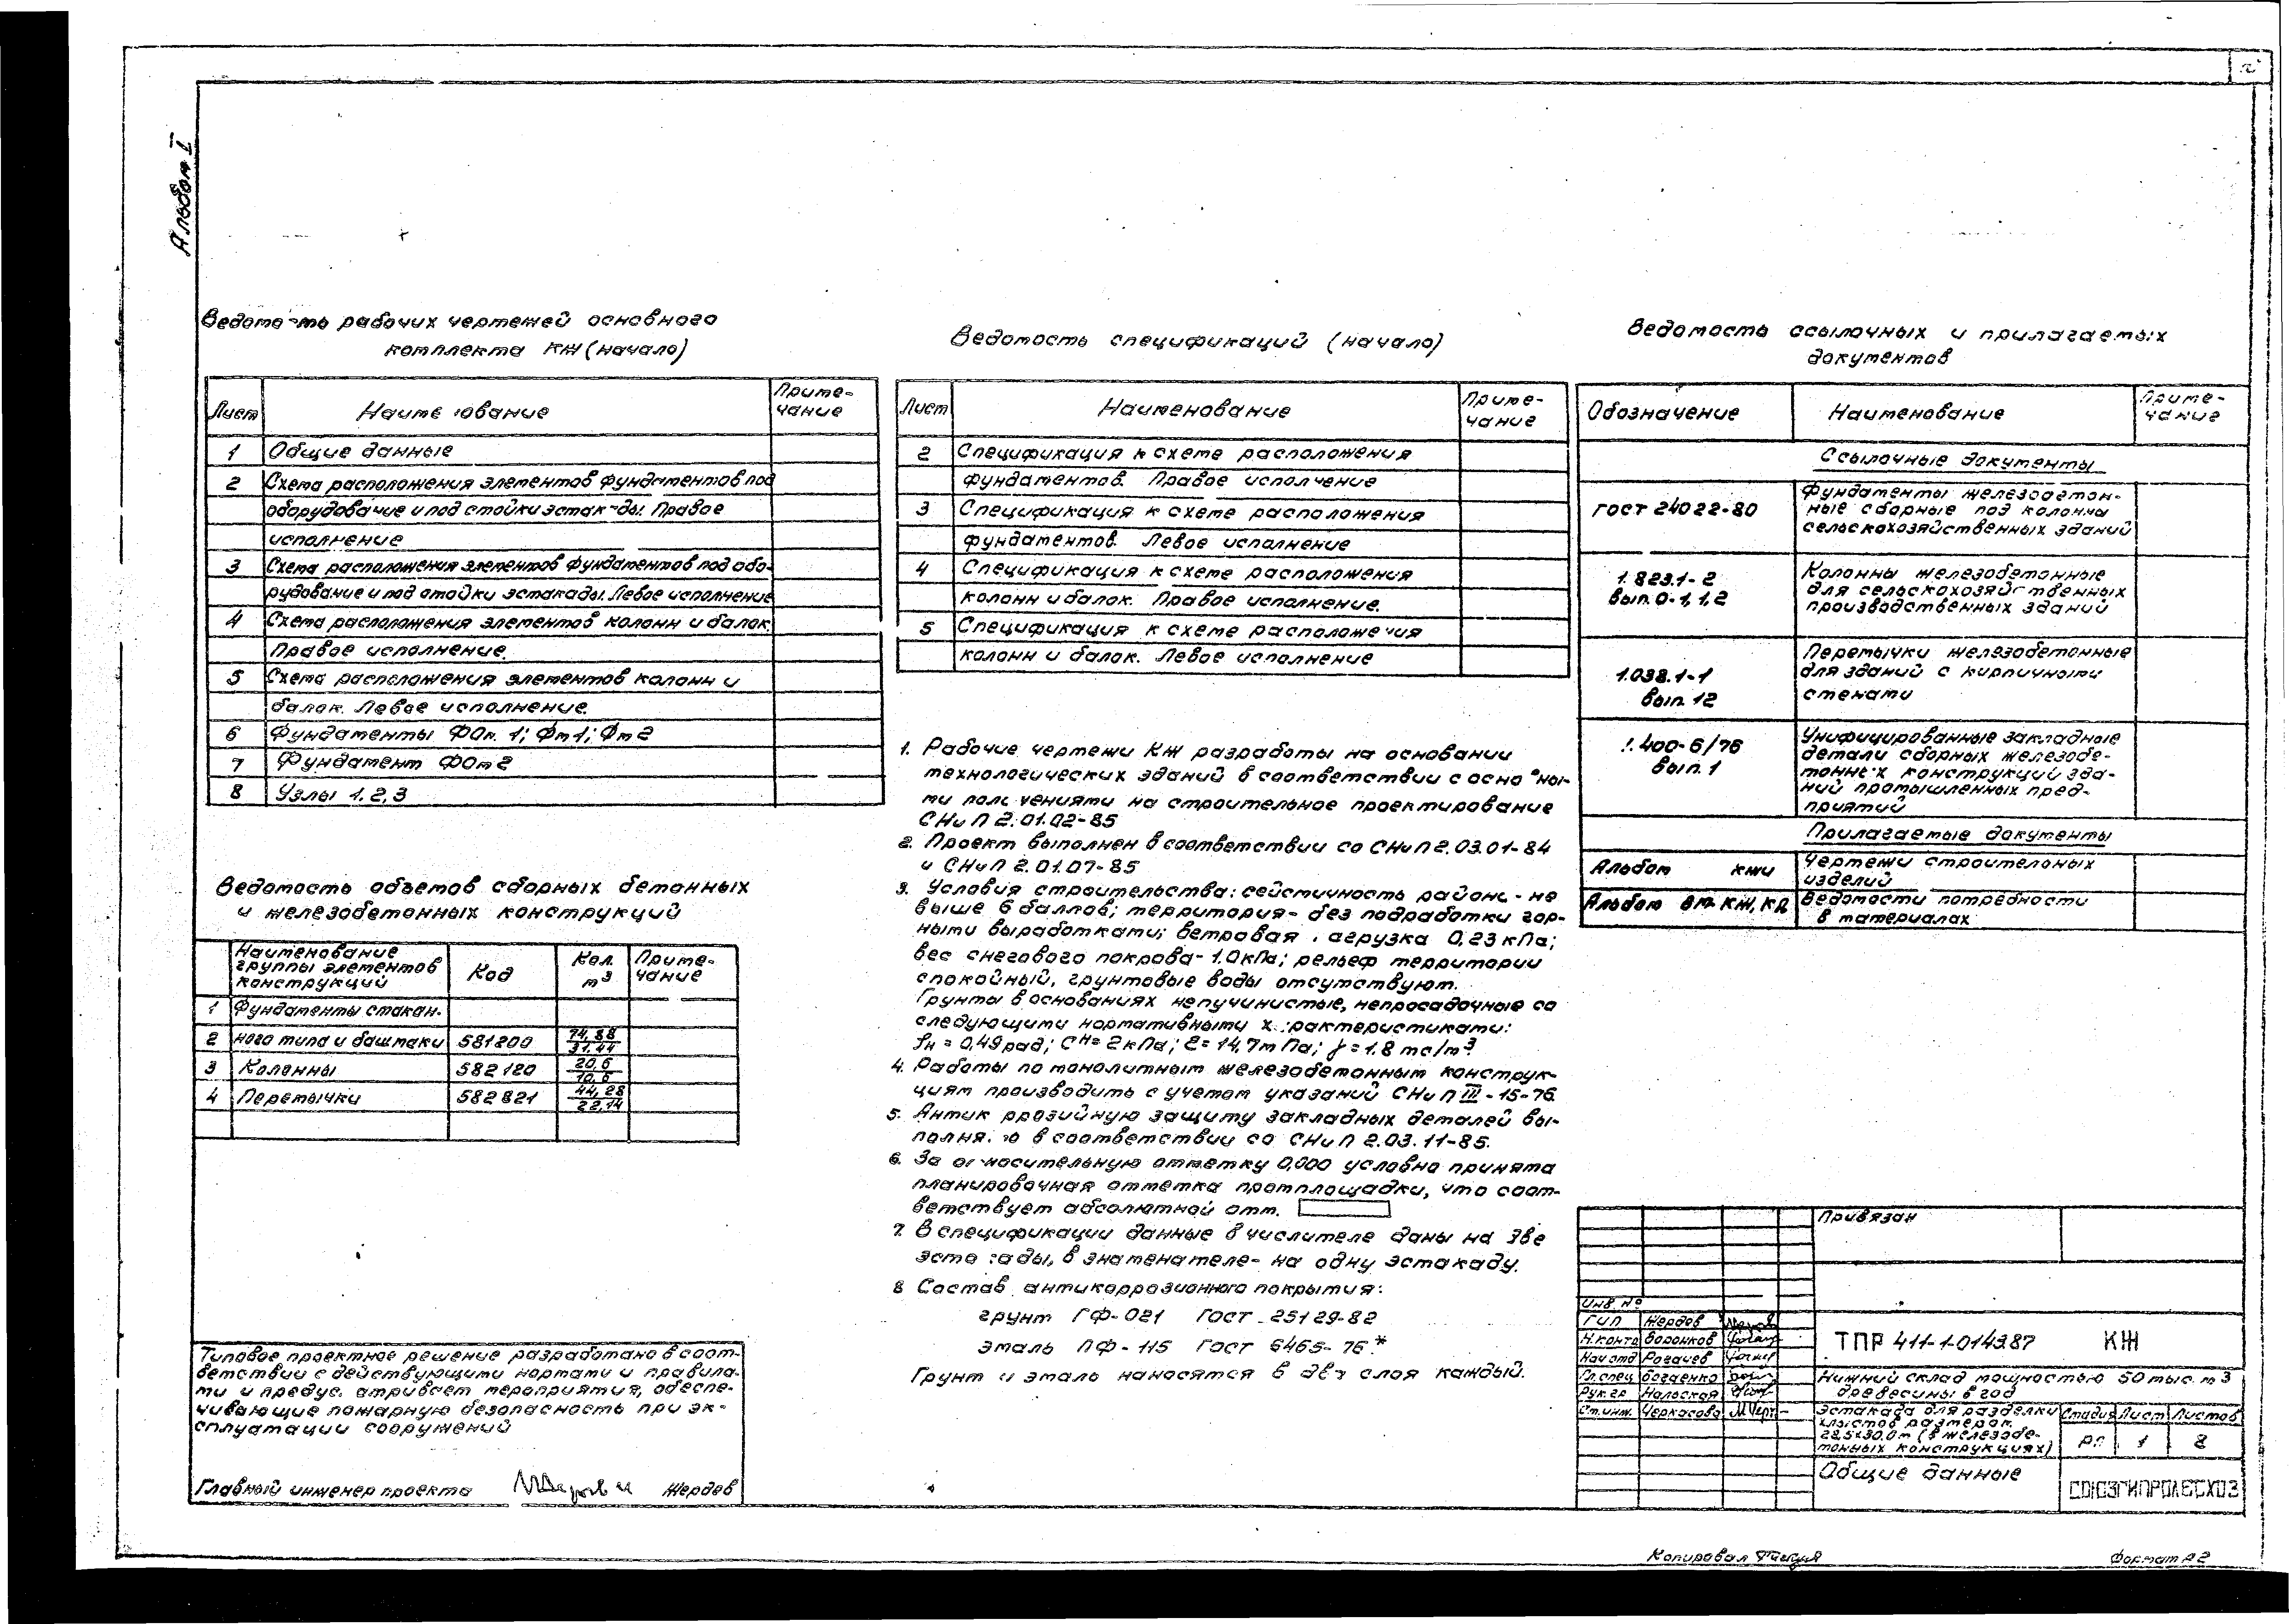 Альбом I
Ведомость рабочих чертежей основного
комплекта КЖ (начало)
Лист Наименование Приме-
чание
1 Общие данные
2 Схема расположения элементов фундаментов под
оборудование и под стойки эстакады. Правое
исполнение
3 Схема расположения элементов фундаментов под обо-
рудование и под стойки эстакады. Левое исполнение
4 Схема расположения элементов колонн и балок.
Правое исполнение.
5 Схема расположения элементов колонн и
балок. Левое исполнение.
6 Фундаменты ФОм 1; Фм1; Фм2
7 Фундамент ФОм2
8 Узлы 1. 2, 3
Ведомость объемов сборных бетонных
и железобетонных конструкций
Наименование
группы элементов
конструкций
Код
Кол.
м3
Приме-
чание
1 Фундаменты стакан-
2 ного типа и башмаки 581200 74,88
31.44
3 Колонны 582120 20,6
10,6
4 Перемычки 582821 44,28
22,14
Типовое проектное решение разработано в соот-
ветствии с действующими нормами и правила-
ми и предусматривает мероприятия, обеспе-
чивающие пожарную безопасность при эк-
сплуатации сооружений
Главный инженер проекта Жердев
Ведомость спецификаций (начало)
Лист Наименование Приме-
чание
2 Спецификация к схеме расположения
фундаментов. Правое исполнение
3 Спецификация к схеме расположения
фундаментов. Левое исполнение
4 Спецификация к схеме расположения
колонн и балок. Правое исполнение.
5 Спецификация к схеме расположения
колонн и балок. Левое исполнение
1. Рабочие чертежи КЖ разработы на основании
технологических зданий в соответствии с основны-
ми положениями на строительное проектирование
СНиП 2.01.02-85
2. Проект выполнен в соответствии со СНиП 2.03.01-84
и СНиП 2.01.07-85
3. Условия строительства: сейсмичность района - не
выше 6 баллов; территория - без подработки гор-
ными выработками; ветровая нагрузка 0,23 кПа;
вес снегового покрова - 1.0 кПа; рельеф территории
спокойный, грунтовые воды отсутствуют.
Грунты в основаниях непучинистые, непросадочные со
следующими нормативными характеристиками:
φн = 0,49 рад; Сн = 2 кПа; Е = 14,7 мПа; γ = 1.8 тс/м3
4. Работы по монолитным железобетонным конструк-
циям производить с учетом указаний СНиП III-15-76.
5. Антикоррозийную защиту закладных деталей вы-
полняю в соответствии со СНиП 2.03.11-85.
6. За относительную отметку 0,000 условно принята
планировочная отметка промплощадки, что соот-
ветствует абсолютной отм.
7. В спецификации данные в числителе даны на две
эстакады, в знаменателе - на одну эстакаду.
8 Состав антикоррозионного покрытия:
грунт ГФ-021 ГОСТ 25129-82
эмаль ПФ-115 ГОСТ 6465-76*
Грунт и эмаль наносятся в два слоя каждый.
Ведомость ссылочных и прилагаемых
документов
Обозначение Наименование Приме-
чание
Ссылочные документы
ГОСТ 24022-80
Фундаменты железобетон-
ные сборные под колонны
сельскохозяйственных зданий
1.823.1-2
вып. 0-1, 1, 2
Колонны железобетонные
для сельскохозяйственных
производственных зданий
1.038.1-1
вып. 12
Перемычки железобетонные
для зданий с кирпичными
стенами
1.400-6/76
вып. 1
Унифицированные закладные
детали сборных железобе-
тонных конструкций зда-
ний промышленных пред-
приятий
Прилагаемые документы
Альбом КЖИ Чертежи строительных
изделий
Альбом ВМ. КЖ, КД Ведомости потребности
в материалах
Привязан
Инв №
ГИП Жердев
Н.контр Воронков
Нач отд Рогачев
Гл.спец Богденко
Рук.гр Нальская
Ст.инж. Черкасова
ТПР 411-1-0143.87 КЖ
Нижний склад мощностью 50 тыс. м3
древесины в год
Эстакада для разделки
хлыстов размером
28,5х30,0м (в железобе-
тонных конструкциях)
Стадия Лист Листов
РП 1 8
Общие данные
СОЮЗГИПРОЛЕСХОЗ
Копировал
Формат А2